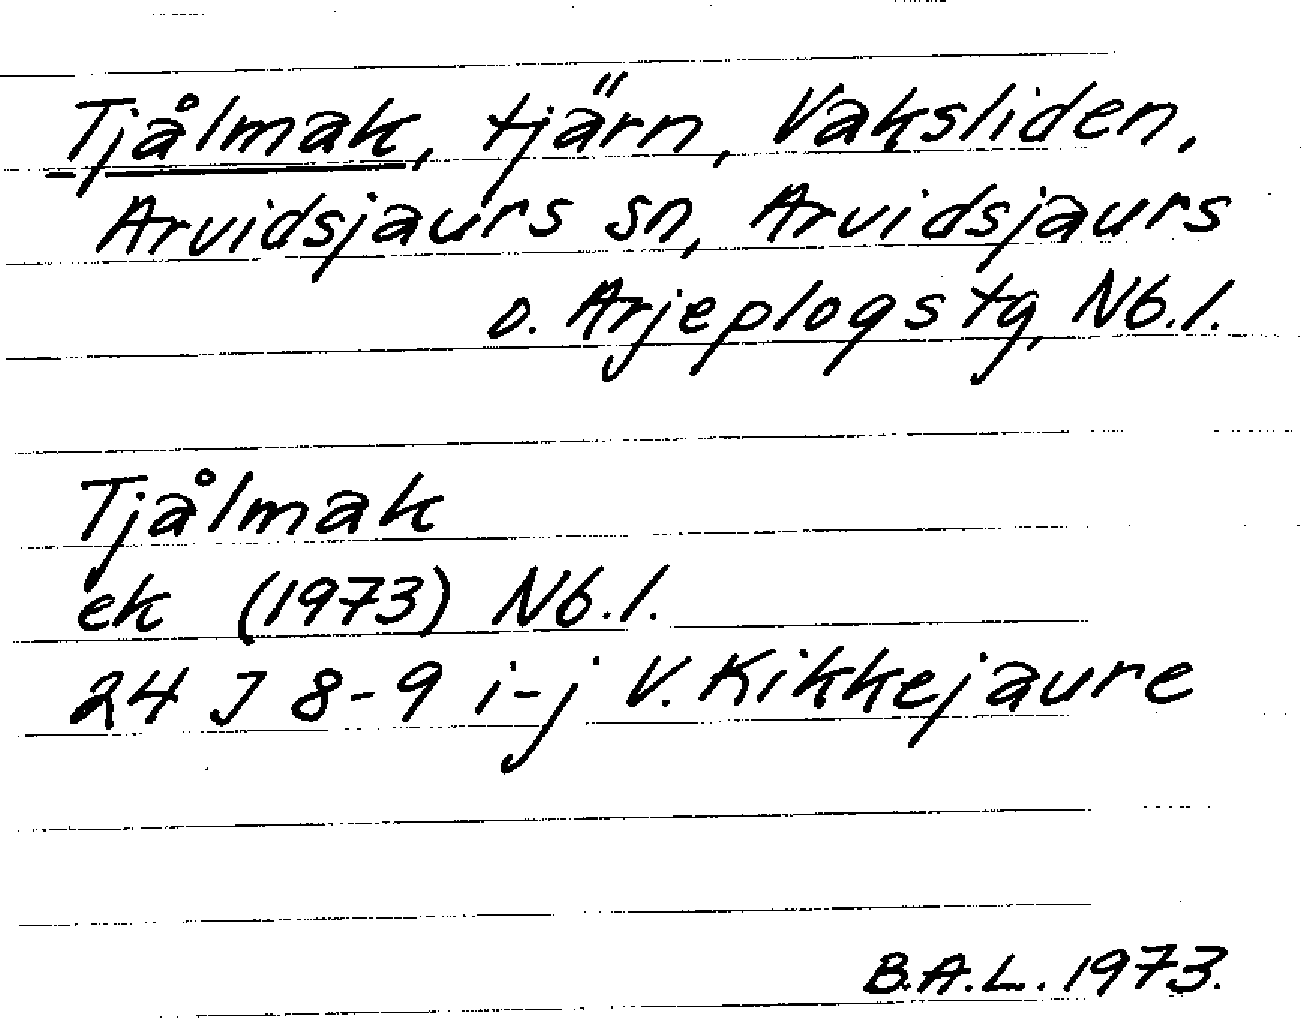 Tjålmak, tjärn, Vaksliden,
Arvidsjaurs sn, Arvidsjaurs
o. Arjeplogs tg, Nb.l.
Tjålmak
ek (1973) Nb.l.
24 J 8-9 i-j V. Kikkejaure
B.A.L. 1973.